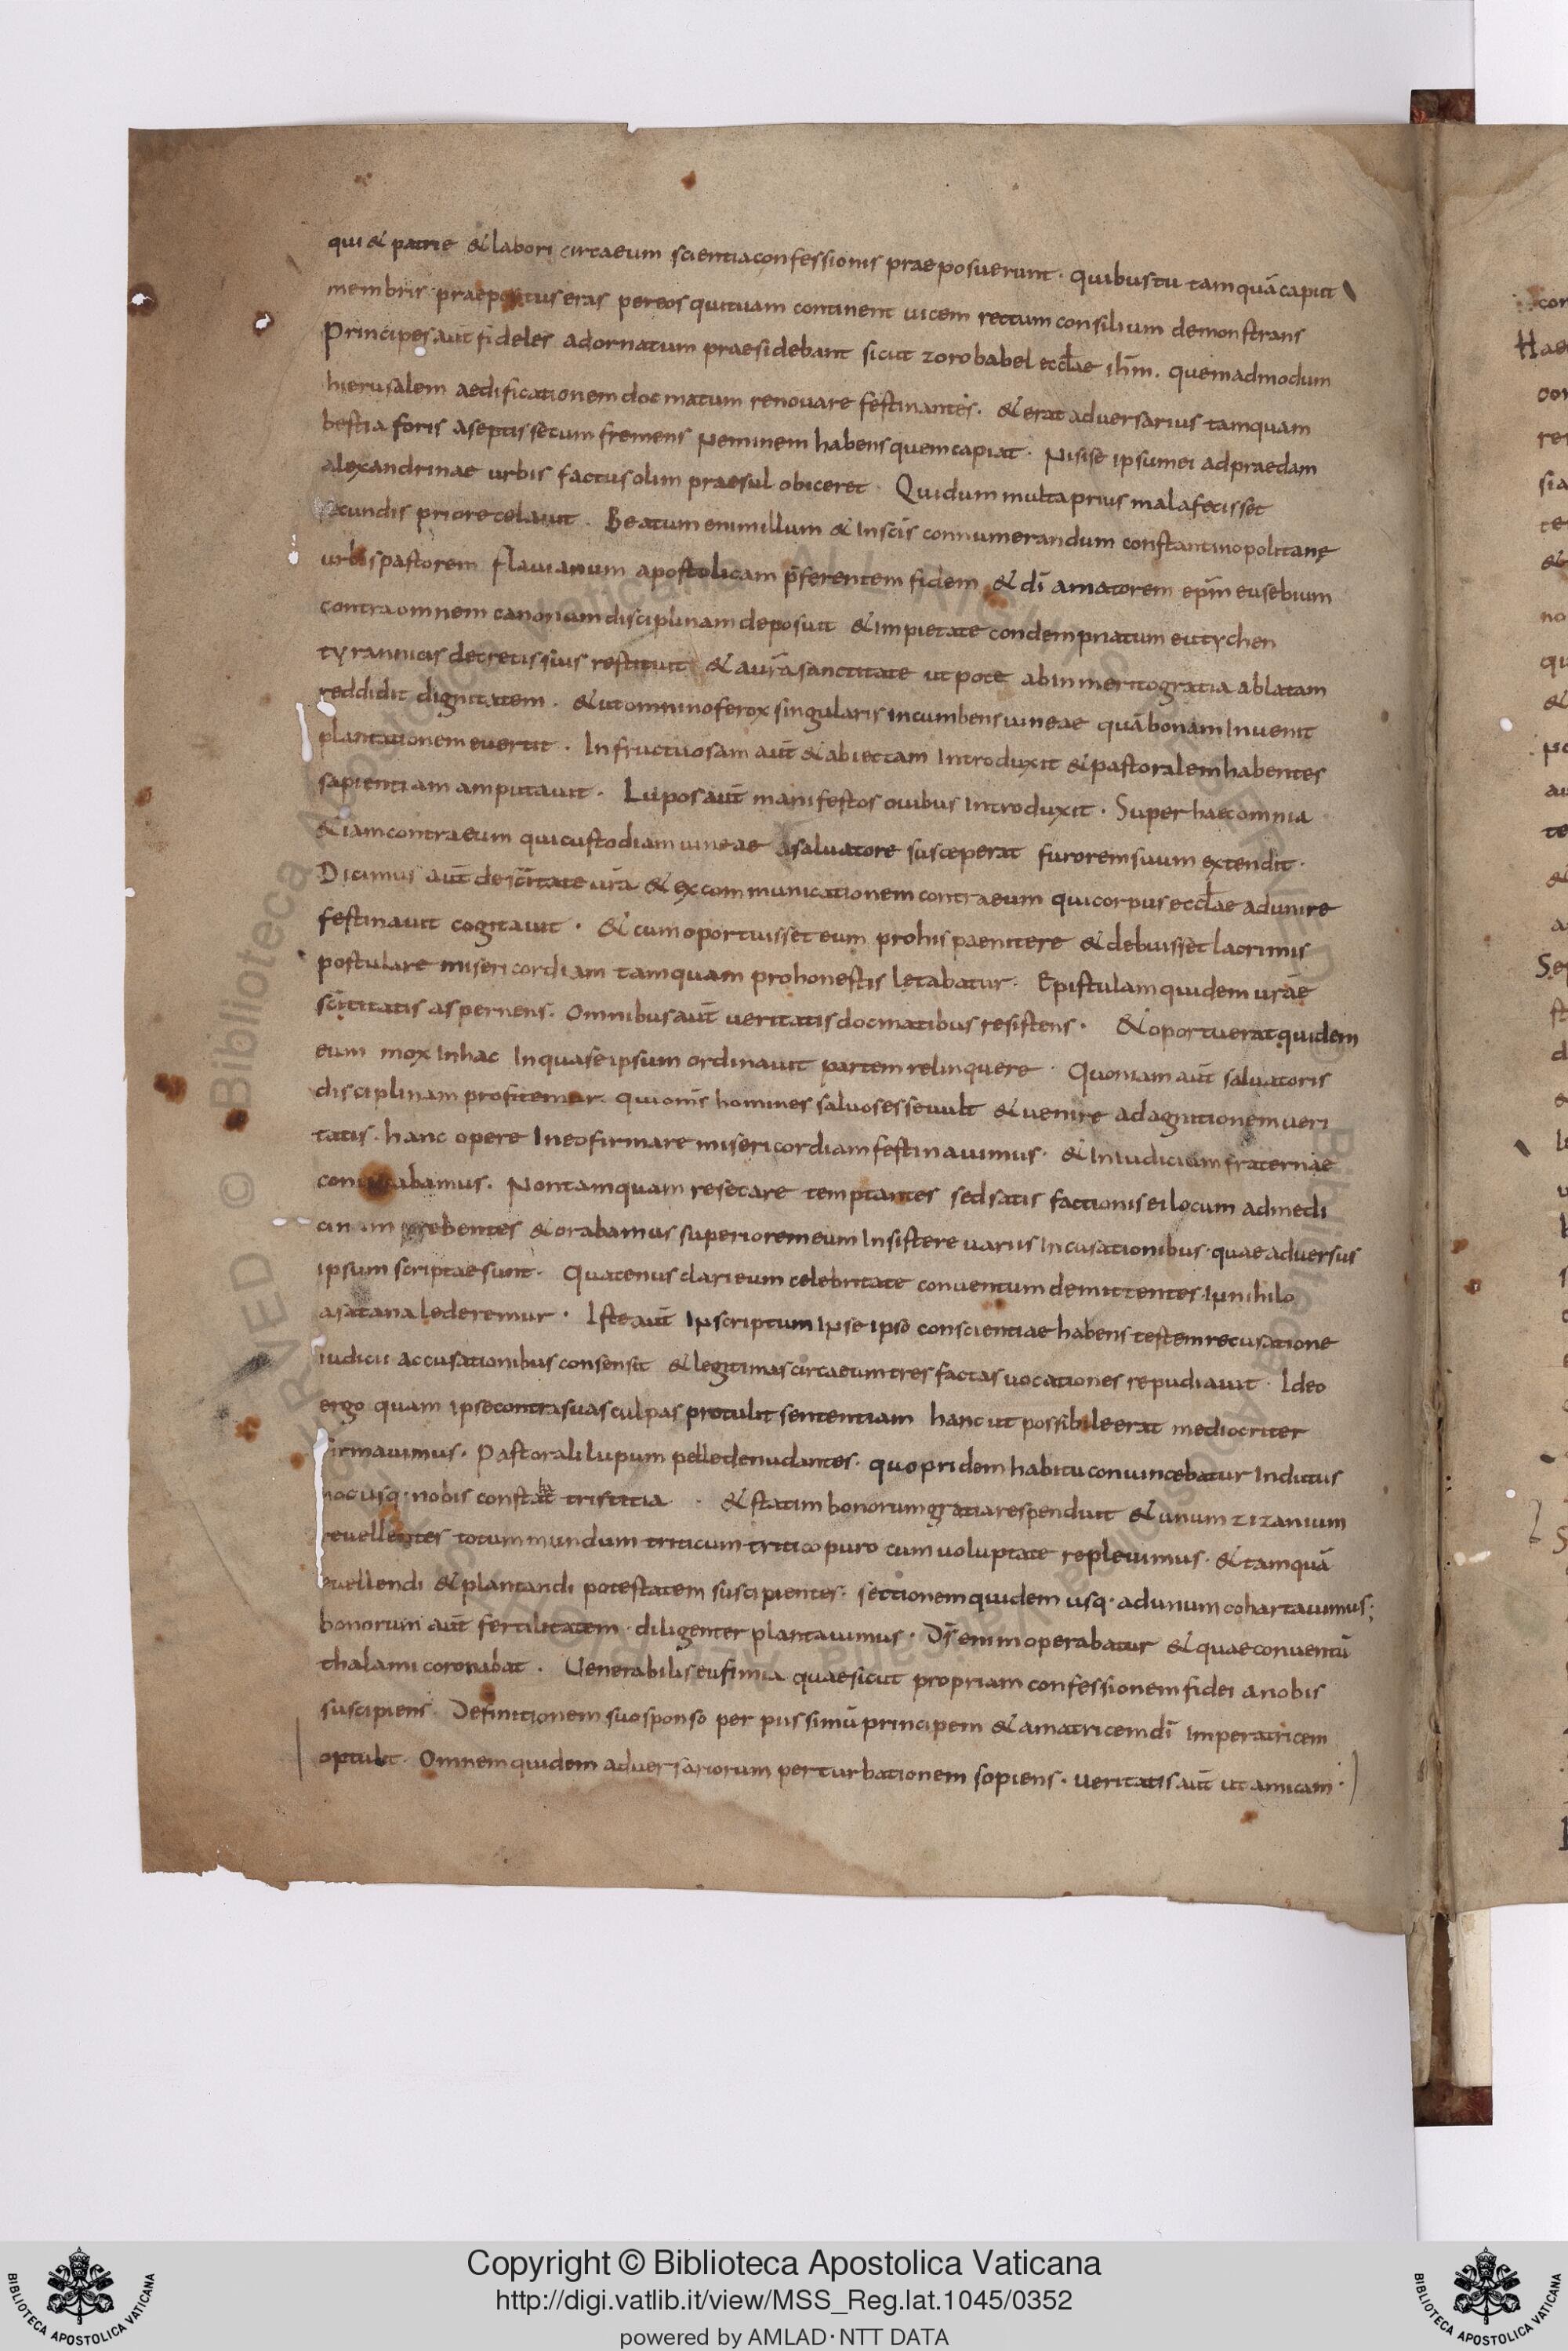 qui & patrie & labori circaeum scientia confessionis praeposuerunt . quibus tu tam quā caput
membris praepositus eras per eos qui tuam continent uicem rectum consilium demonstrans
Principes aūt fideles adornatum praesidebant sicut zorobabel eccłae ihm̄ . quemadmodum
hierusalem aedificationem docmatum renouare festinantes . & erat aduersarius tamquam
bestia foris a septis secum fremens Neminem habens quem capiat . Nisi se ipsum ei ad praedam
alexandrinae urbis factus olim praesul obiceret . Qui dum multa prius mala fecisset
secundis priore celauit . Beatum enim illum & In scīs connumerandum constantinopolitanę
urbis pastorem flauianum apostolicam p̄ferentem fidem & dī amatorem epm̄ eusebium
contra omnem canonum disciplinam deposuit & impietate condempnatum eutychen
tyrannicis decretis suis restituit & a ur̄a sanctitate ut pote ab inmerito gratia ablatam
reddidit dignitatem . & ut omnino ferox singularis incumbens uineae quā bonam Inuenit
plantationem euertit . Infructuosam aūt & abiectam Introduxit & pastoralem habentes
sapientiam amputauit . Lupos aūt manifestos ouibus Introduxit . Super haec omnia
& iam contra eum qui custodiam uineae a saluatore susceperat furorem suum extendit .
Dicimus aūt de sc̄itate ur̄a & excommunicationem contra eum qui corpus eccłae adunire
festinauit cogitauit . & cum oportuisset eum pro his paenitere & debuisset lacrimis
postulare misericordiam tamquam pro honestis letabatur . Epistulam quidem urāe
sc̄ititatis aspernens . Omnibus aūt ueritatis docmatibus resistens . & oportuerat quidem
eum mox In hac In qua se ipsum ordinauit partem relinquere . Quoniam aūt saluatoris
disciplinam profitemur qui omn̄s homines saluos esse uult & uenire ad agnitionem ueri
tatis . hanc opere In eo firmare misericordiam festinauimus . & In iudicium fraternae
abamus . Non tamquam resecare temptantes sed satis factionis ei locum ad medi
prebentes & orabamus superiorem eum Insistere uariis Incusationibus . quae aduersus
ipsum scriptae sunt . Quatenus clari eum celebritate conuentum demittentes In nihilo
a satana lederemur . Iste aūt In scriptum In se ipso conscientiae habens testem recusatione
iudicii accusationibus consensit & legitimas circa eum tres factas uocationes repudiauit . Ideo
ergo quam ipse contra suas culpas protulit sententiam hanc ut possibile erat mediocriter
firmauimus . Pastorali lupum pelle denudantes . quo pridem habitu conuincebatur Indutus
hoc usq; nobis constat tristitia . & statim bonorum gratia respenduit & unum zizanium
reuellentes totum mundum triticum tritico puro cum uoluptate repleuimus . & tamquā
euellendi & plantandi potestatem suscipientes . sectionem quidem usq; ad unum cohartauimus ;
bonorum aūt fertilitatem . diligenter plantauimus . Ds̄ enim operabatur & quae conuentū
thalami coronabat . Uenerabilis eufimia quae sicut propriam confessionem fidei a nobis
suscipiens . Definitionem suo sponso per piissimū principem & amatricem dī Imperatricem
optulit . Omnem quidem aduersariorum perturbationem sopiens . ueritatis aūt ut amicam .
Copyright © Biblioteca Apostolica Vaticana
http://digi.vatlib.it/view/MSS_Reg.lat.1045/0352
powered by AMLAD·NTT DATA